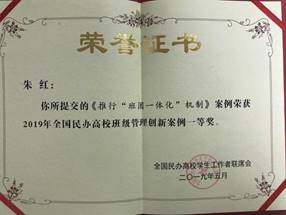 荣誉证书
朱红：
你所提交的《推行“班团一体化”机制》案例荣获
2019年全国民办高校班级管理创新案例一等奖。
全国民办高校学生工作者联席会
二〇一九年五月